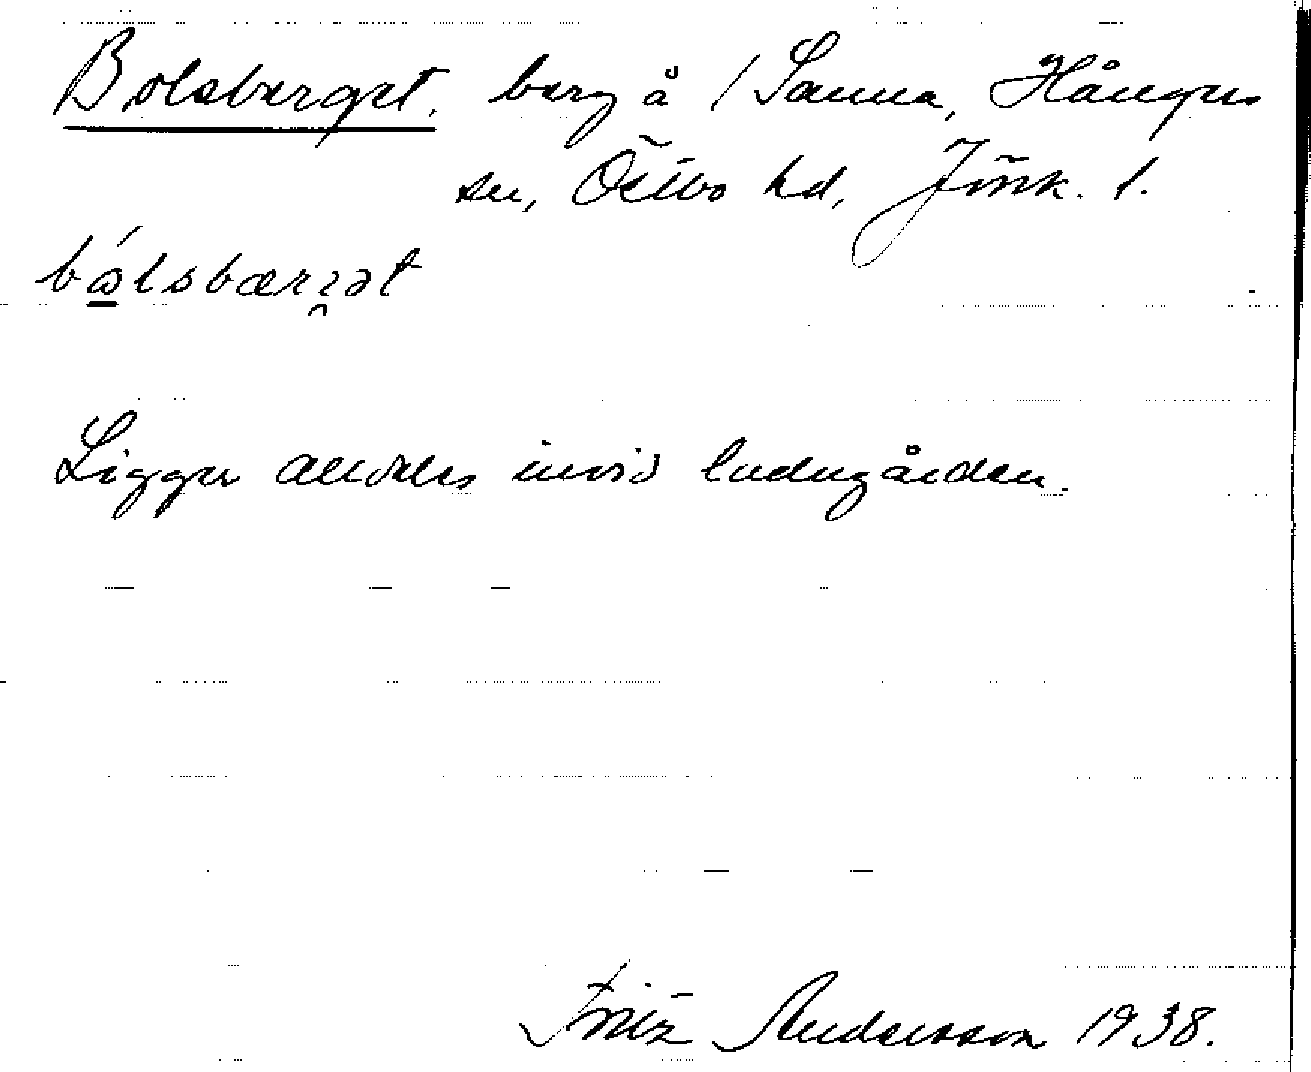 Bolsberget, berg å / Sanna, Hångers
sn, Östbo hd, Jönk. l.
Ligger alldeles invid ladugården.
Fritz Andersson 1938.